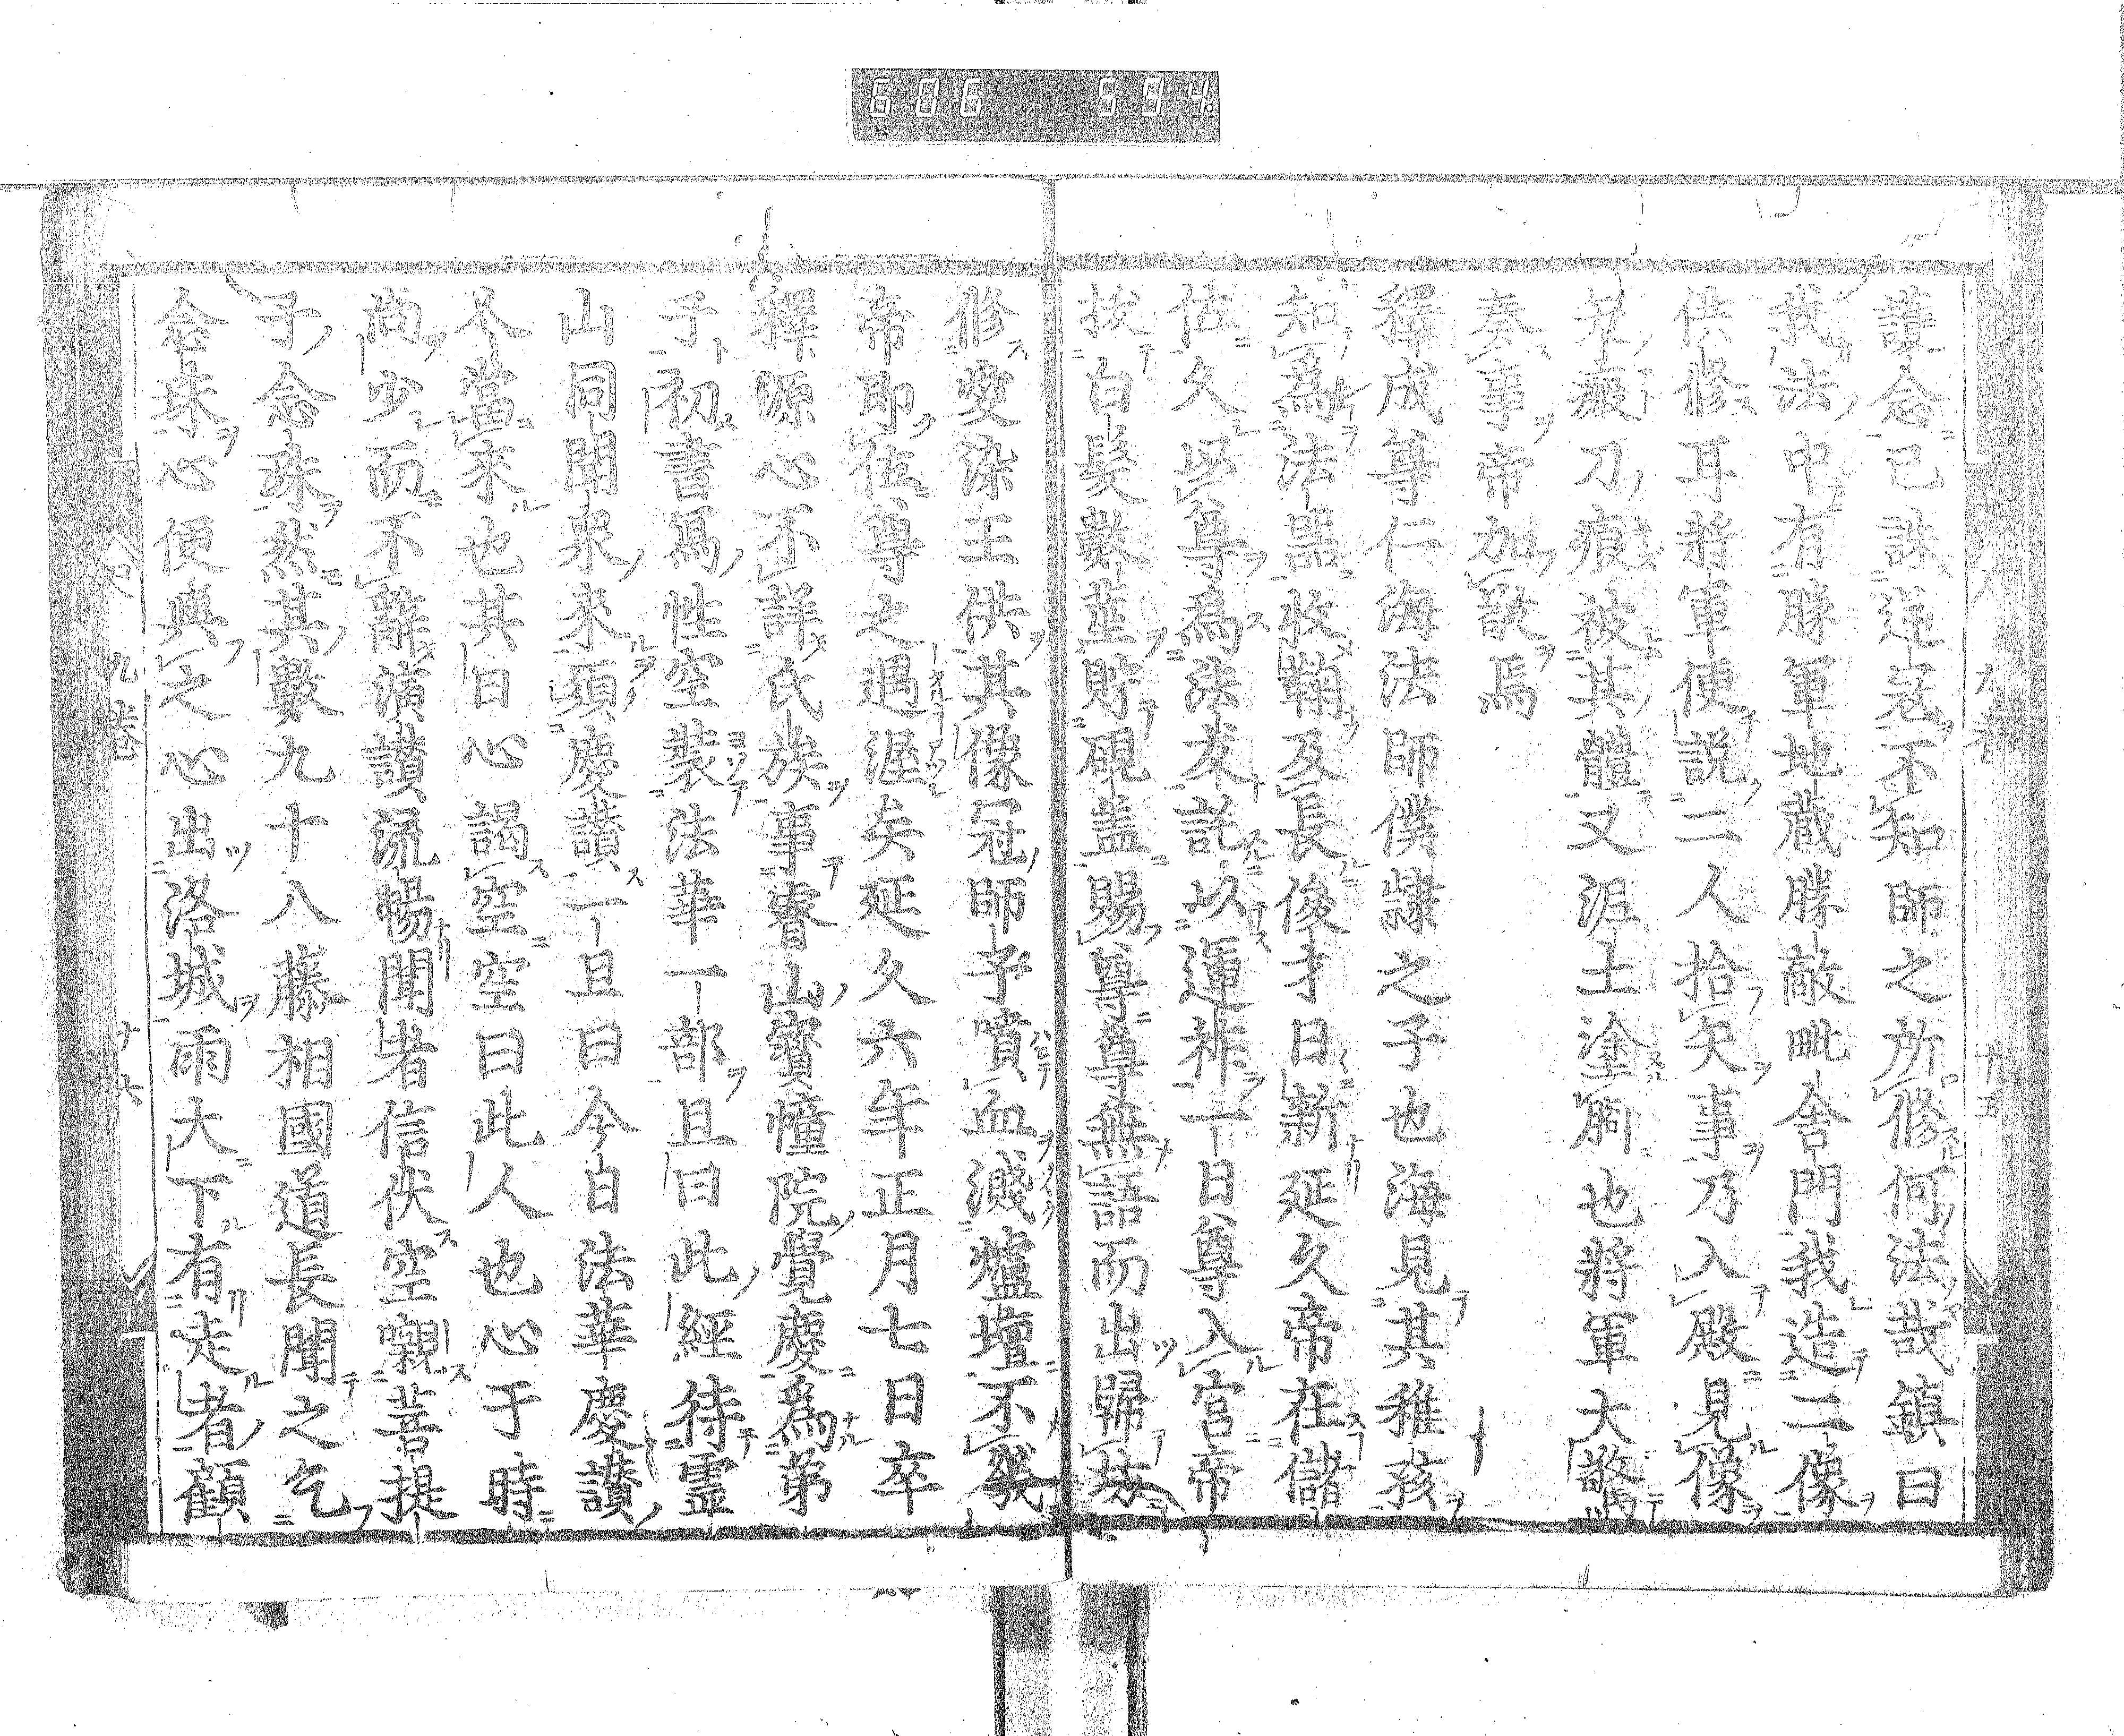 606 594
護念已誅逆寇不知師之所修何法哉鎮曰
我法中有勝軍地藏勝敵毗舍門我造二像
供修耳將軍便説二人拾矢事乃入殿見像
瘢刀痕被其體又泥土塗脚也將軍大驚
奏事帝加歎焉
釋成尊仁海法師僕隷之子也海見其稚孩
知爲法器收鞠及長俊才日新延久帝在儲
位久以尊爲法友託以運祚一日尊入官帝
拔白髮數莖貯硯盖賜尊尊無語而出歸坊
修愛染王供其像冠師子噴血濺爐壇不幾
帝即位尊之遇渥矣延久六年正月七日卒
釋源心不詳氏族事睿山寶幢院覺慶爲弟
子初書寫性空裝法華一部且曰此經待霊
山同聞衆來須慶讃一旦曰今自法華慶讃
不當來也其日心謁空空曰此人也心于時
尚少而不辭演讃流暢聞者信伏空嚫菩提
子念珠然其數九十八藤相國道長聞之乞
念珠心便與之心出洛城雨大下有走者顧
九卷 十六